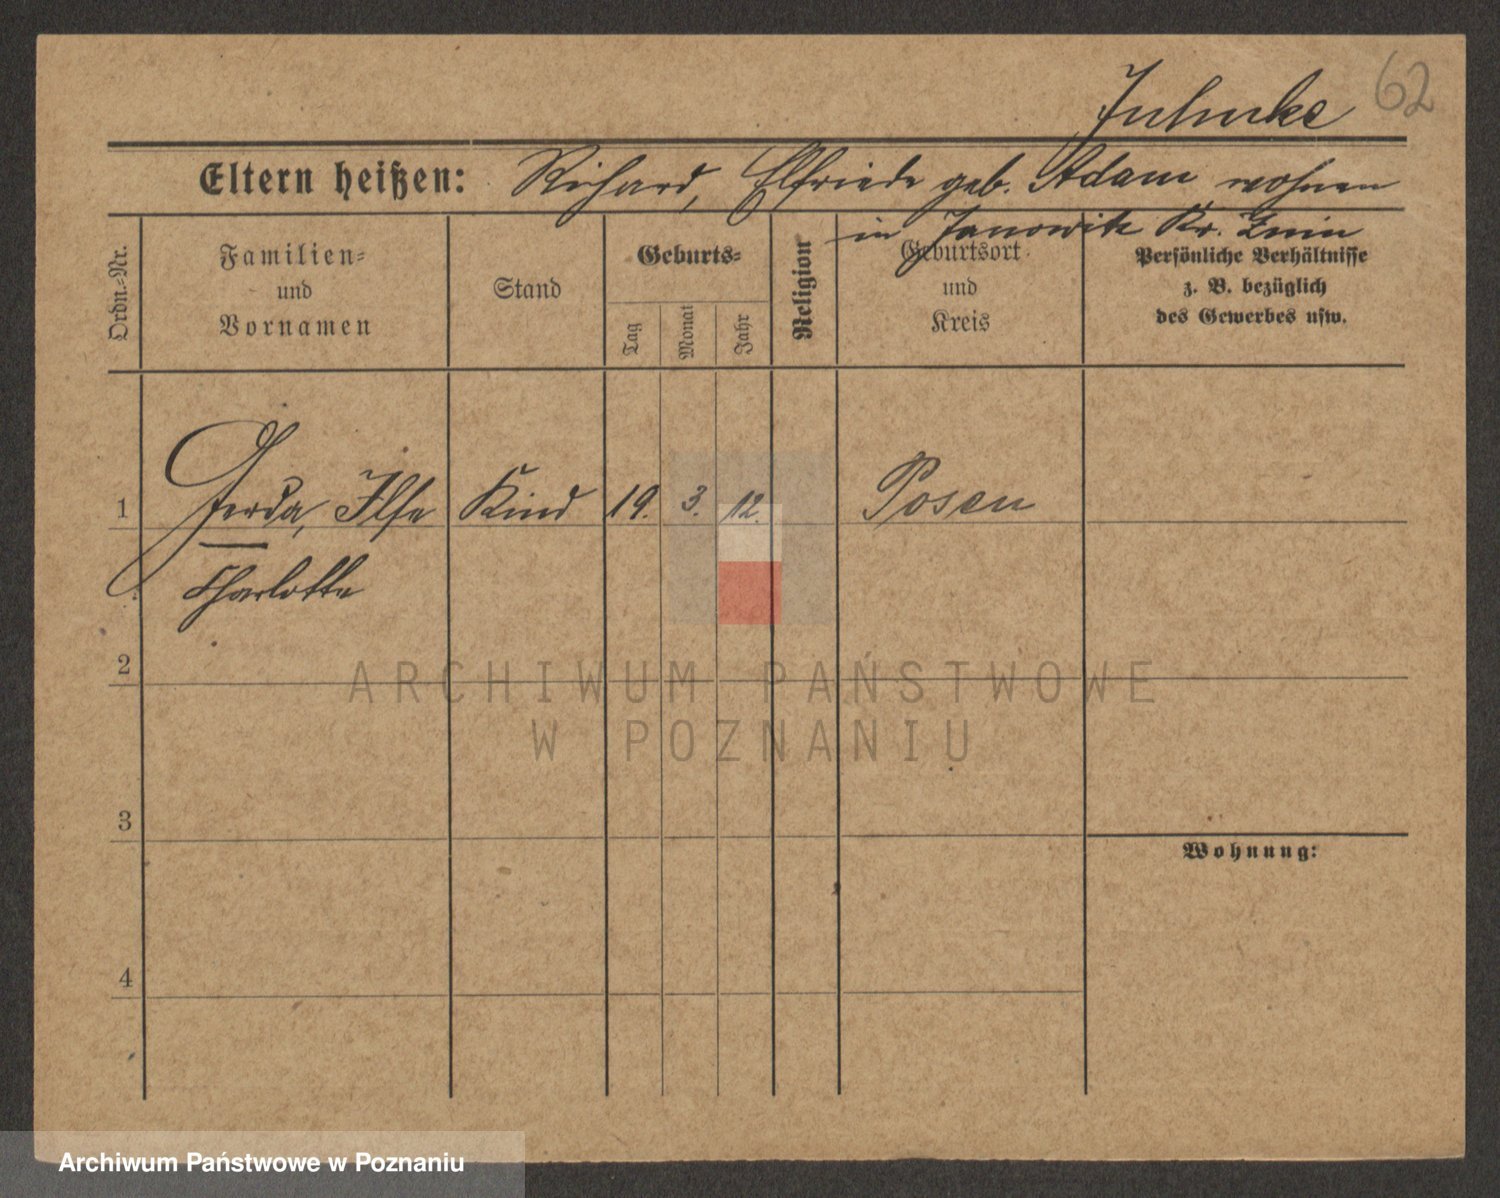 62
Eltern heißen: Richard, Elfriede geb. Adam wohnen
in Janowitz Kr. Znin
Ordn.-Nr.
Familien-
und
Vornamen
Stand
Geburts-
Tag
Monat
Jahr
Religion
Geburtsort
und
Kreis
Persönliche Verhältnisse
z. B. bezüglich
des Gewerbes usw.
1 Gerda, Ilse Kind 19. 3. 12. Posen
Charlotte
2
3
4
Wohnung:
ARCHIWUM PAŃSTWOWE
W POZNANIU
Archiwum Państwowe w Poznaniu